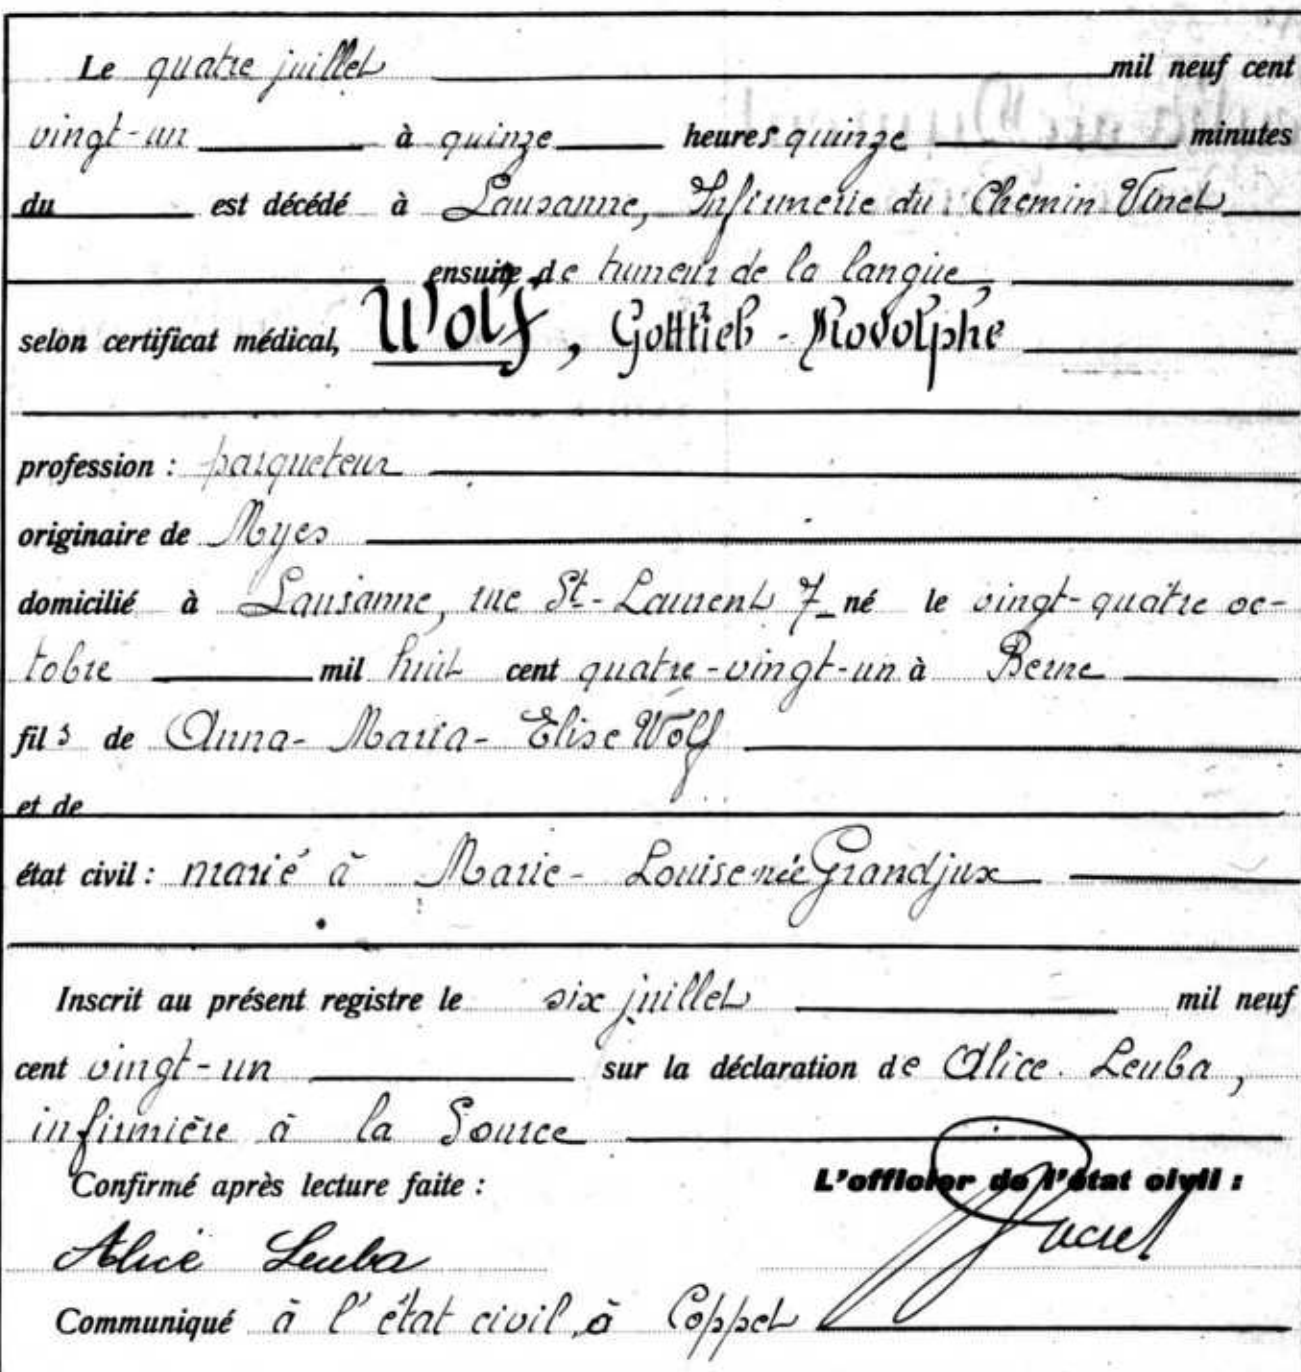 Le quatre juillet mil neuf cent
vingt-un à quinze heures quinze minutes
du est décédé à Lausanne, Infirmerie du Chemin Vinet
ensuite de tumeur de la langue,
selon certificat médical, Wolf, Gottlieb-Rodolphe
profession : parqueteur
originaire de Myes
domicilié à Lausanne, rue St-Laurent 7 né le vingt-quatre oc-
tobre mil huit cent quatre-vingt-un à Berne
fils de Anna-Maria-Elise Wolf
et de
état civil : marié à Marie-Louise née Grandjux
Inscrit au présent registre le six juillet mil neuf
cent vingt-un sur la déclaration de Alice Leuba,
infirmière à la Source
Confirmé après lecture faite : L'officier de l'état civil :
Alice Leuba
Communiqué à l'état civil, à Coppet